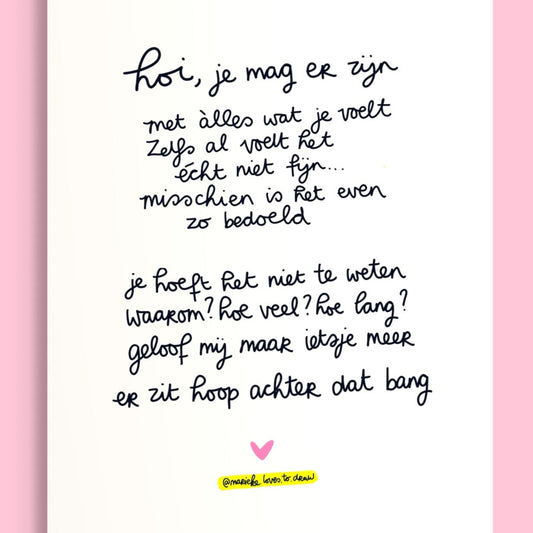 hoi, je mag er zijn
met àlles wat je voelt
Zelfs al voelt het
écht niet fijn...
misschien is het even
zo bedoeld
je hoeft het niet te weten
waarom? hoe veel? hoe lang?
geloof mij maar ietsje meer
er zit hoop achter dat bang
@marieke_loves_to_draw